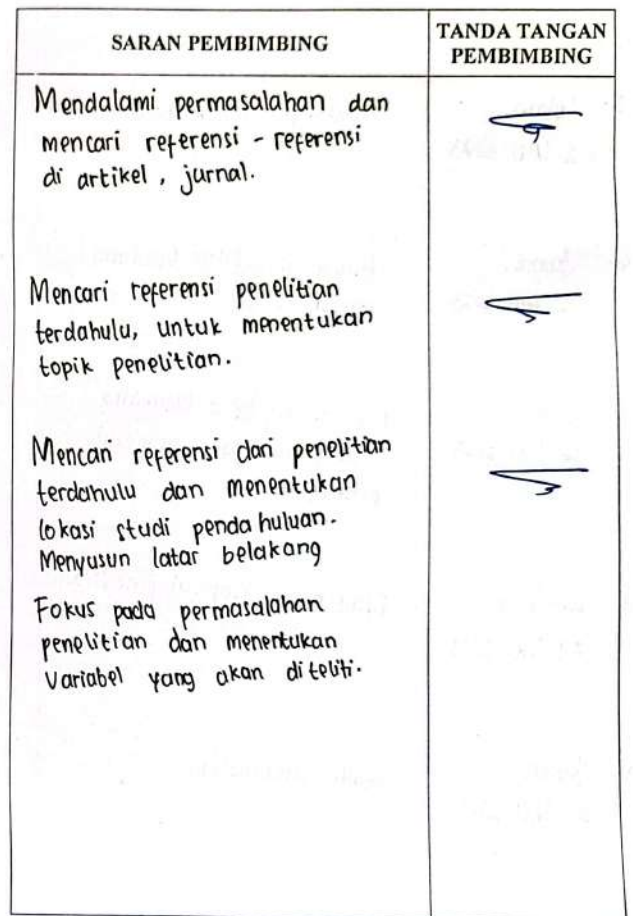 SARAN PEMBIMBING
TANDA TANGAN
PEMBIMBING
Mendalami permasalahan dan
mencari referensi - referensi
di artikel, jurnal.
Mencari referensi penelitian
terdahulu, untuk menentukan
topik penelitian.
Mencari referensi dari penelitian
terdahulu dan menentukan
lokasi studi pendahuluan.
Menyusun latar belakang
Fokus pada permasalahan
penelitian dan menentukan
Variabel yang akan diteliti.